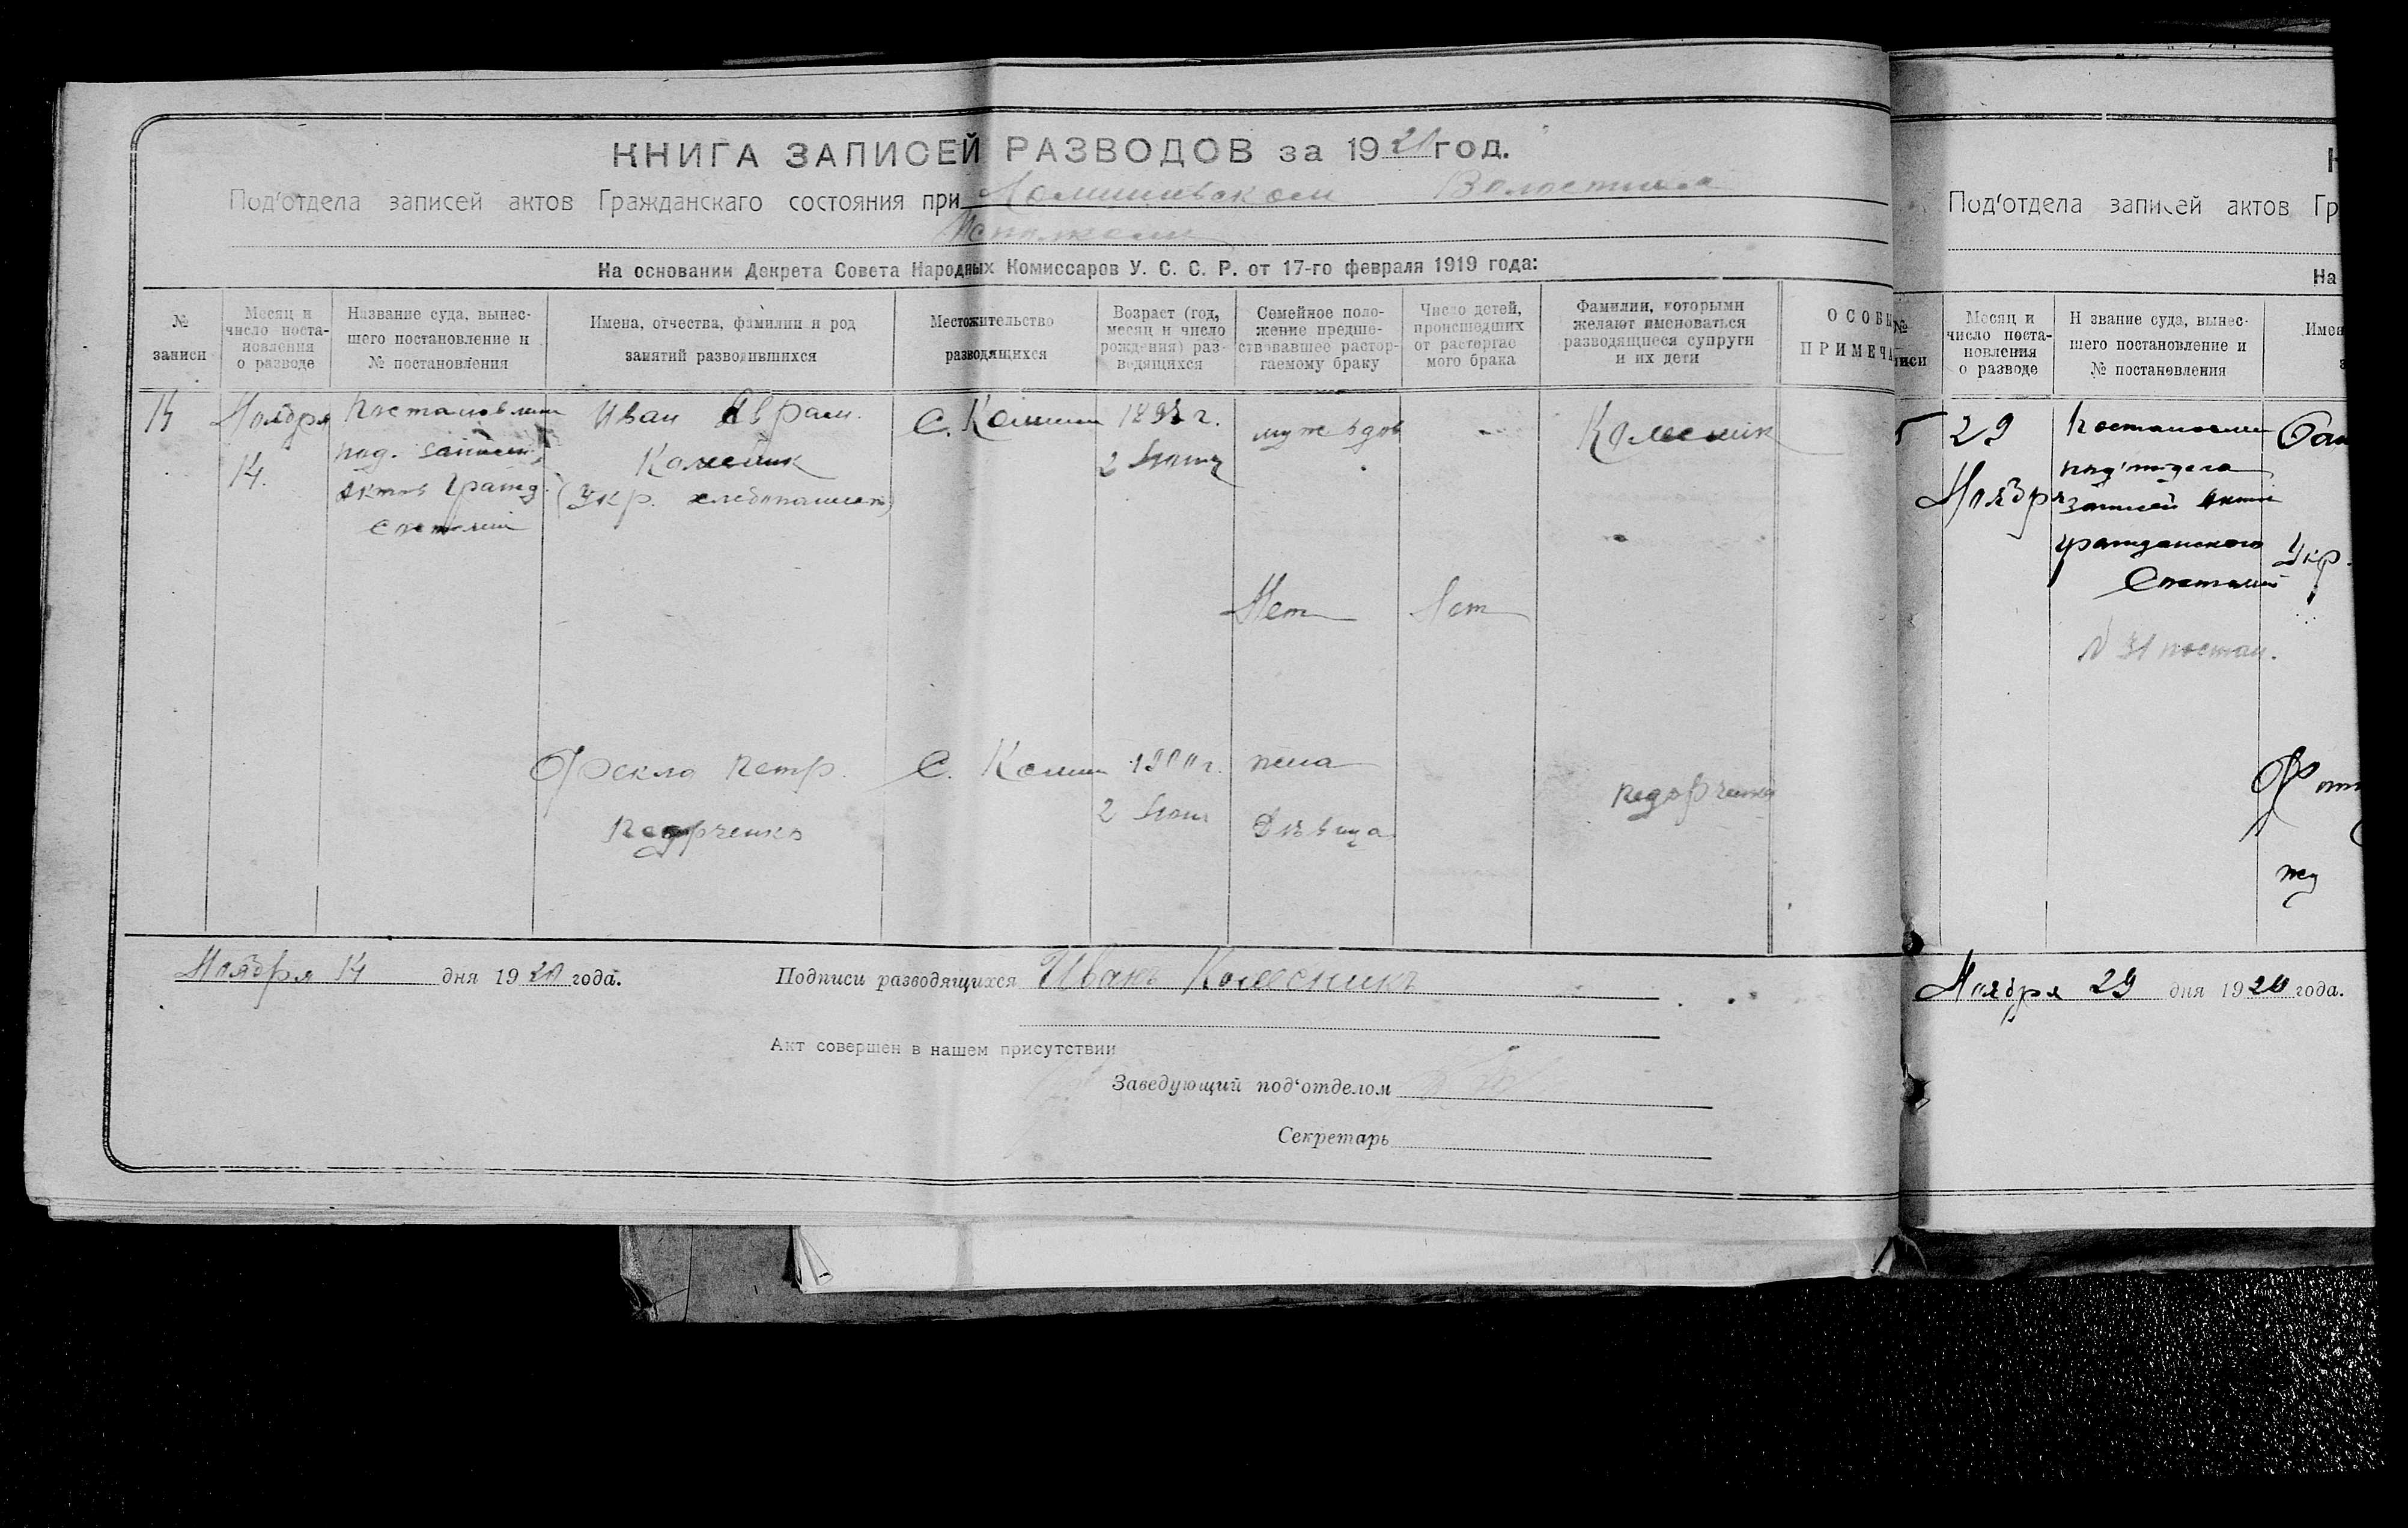 КНИГА ЗАПИСЕЙ РАЗВОДОВ за 1920 год.
Под'отдела записей актов Гражданскаго состояния при Волостном
Исполкоме
На основании Декрета Совета Народных Комиссаров У. С. С. Р. от 17-го февраля 1919 года:
№ записи
Месяц и число поста-новления о разводе
Название суда, вынес-шего постановление и № постановления
Имена, отчества, фамилии и род занятий разводившихся
Местожительство разводящихся
Возраст (год, месяц и число рождения) раз-водящихся
Семейное поло-жение предше-ствовавшее растор-гаемому браку
Число детей, происшедших от расторгае мого брака
Фамилии, которыми желают именоваться разводящиеся супруги и их дети
ОСОБЫ
ПРИМЕЧА
14 Ноября Постановлен Иван Аврам. С. 189 г. муж вдов - Колесник
14. под. записей Колесник 2
актов Гражд. (Укр. хлебопашец)
Состояний
Нет Нет
Фекла Петр. С. 1900 г. жена
Педорченко 2 Дѣвица Педорченко
Ноября 14 дня 1920 года.
Подписи разводящихся Иванъ Колесникъ
Акт совершен в нашем присутствии
Заведующий под'отделом
Секретарь
Под'отдела записей актов Гр
На
№
иси
Месяц и число поста-новления о разводе
Н звание суда, вынес-шего постановление и № постановления
Имен
з
5 29 Постановлен
под'отдела
Ноября записей актов
Гражданского Укр.
Состояний
№ 31 постан.
Ноября 29 дня 1920 года.